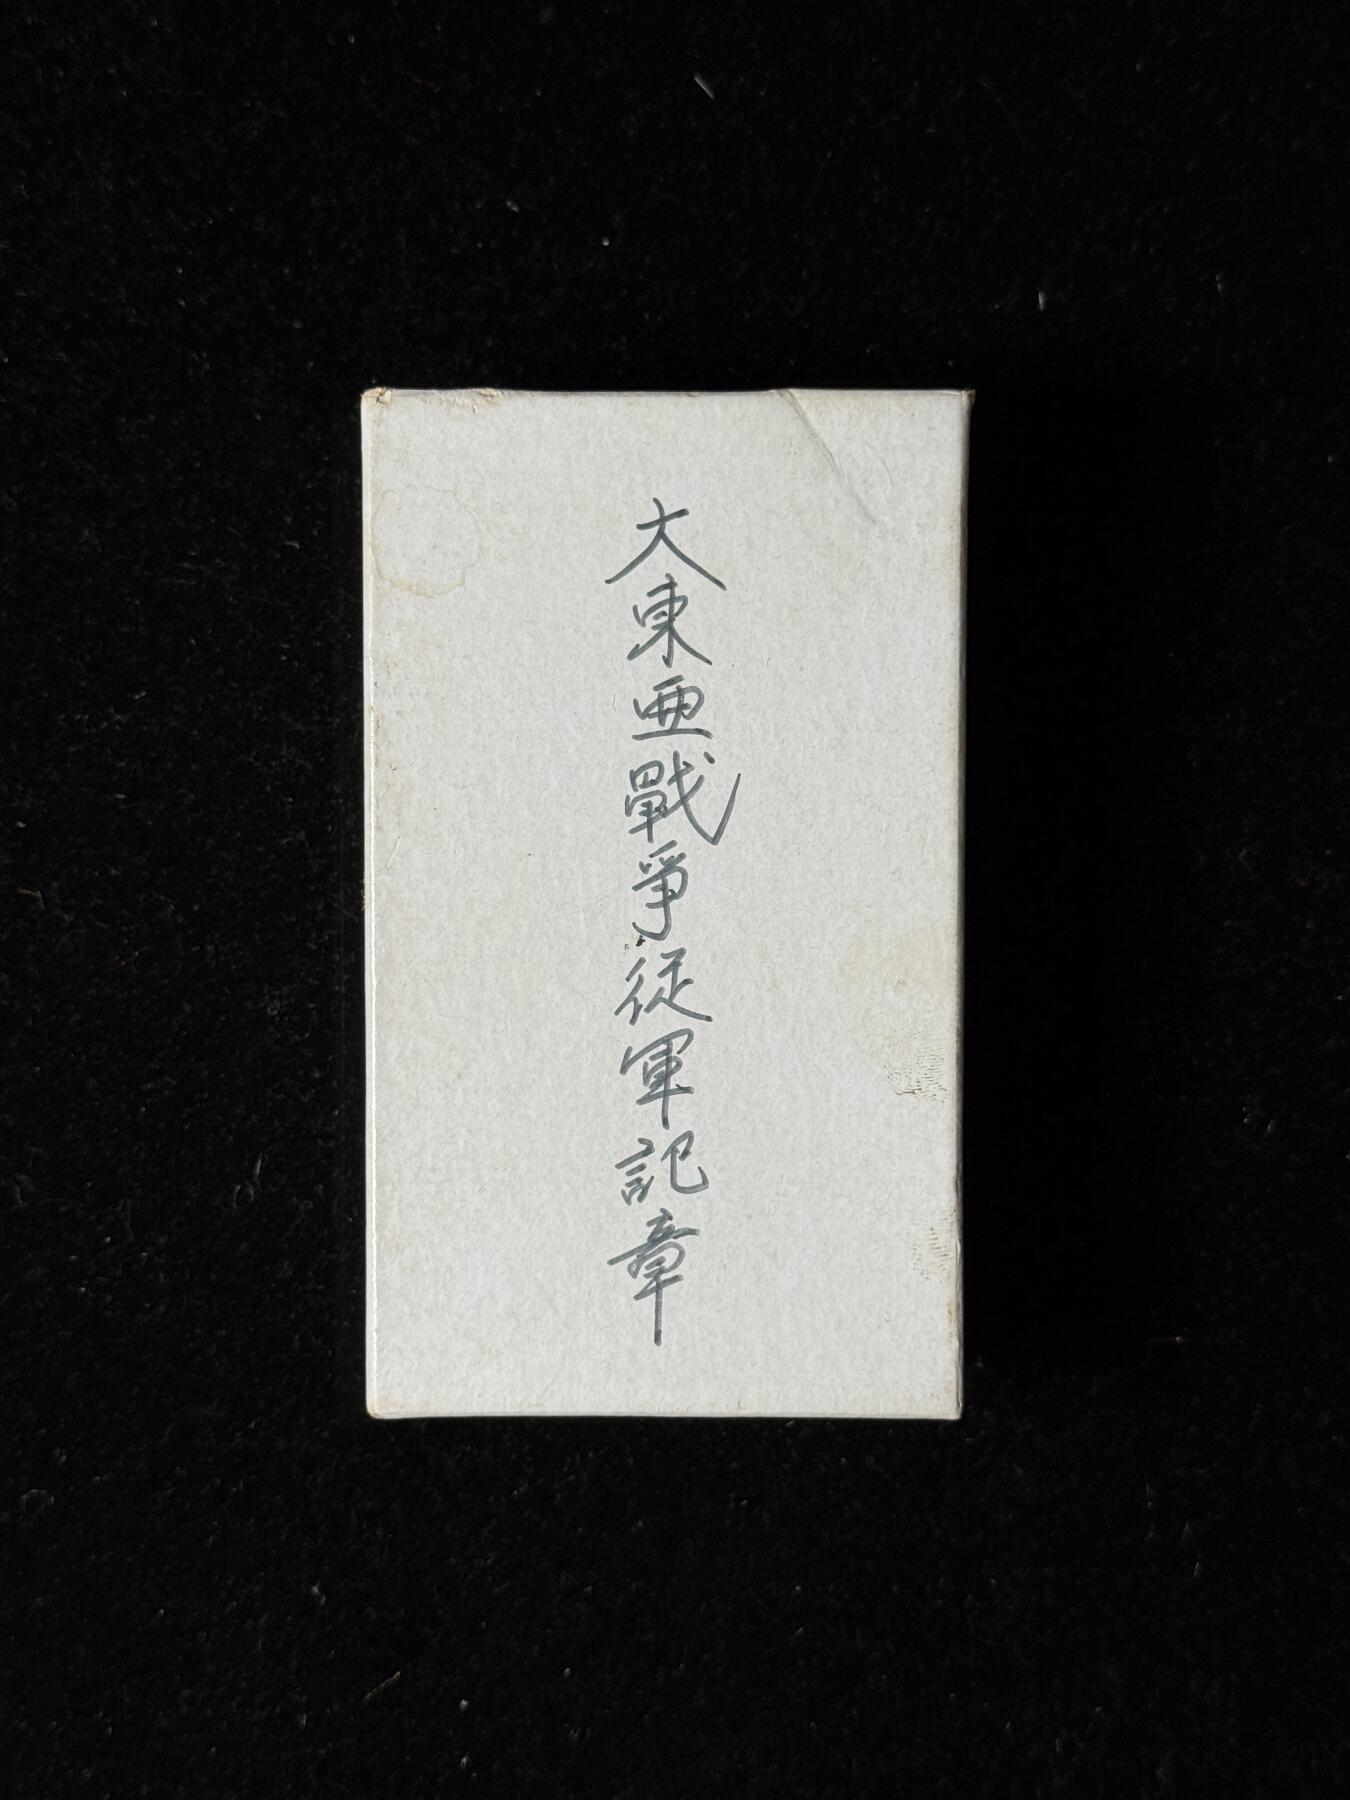 大東亜戰爭従軍記章